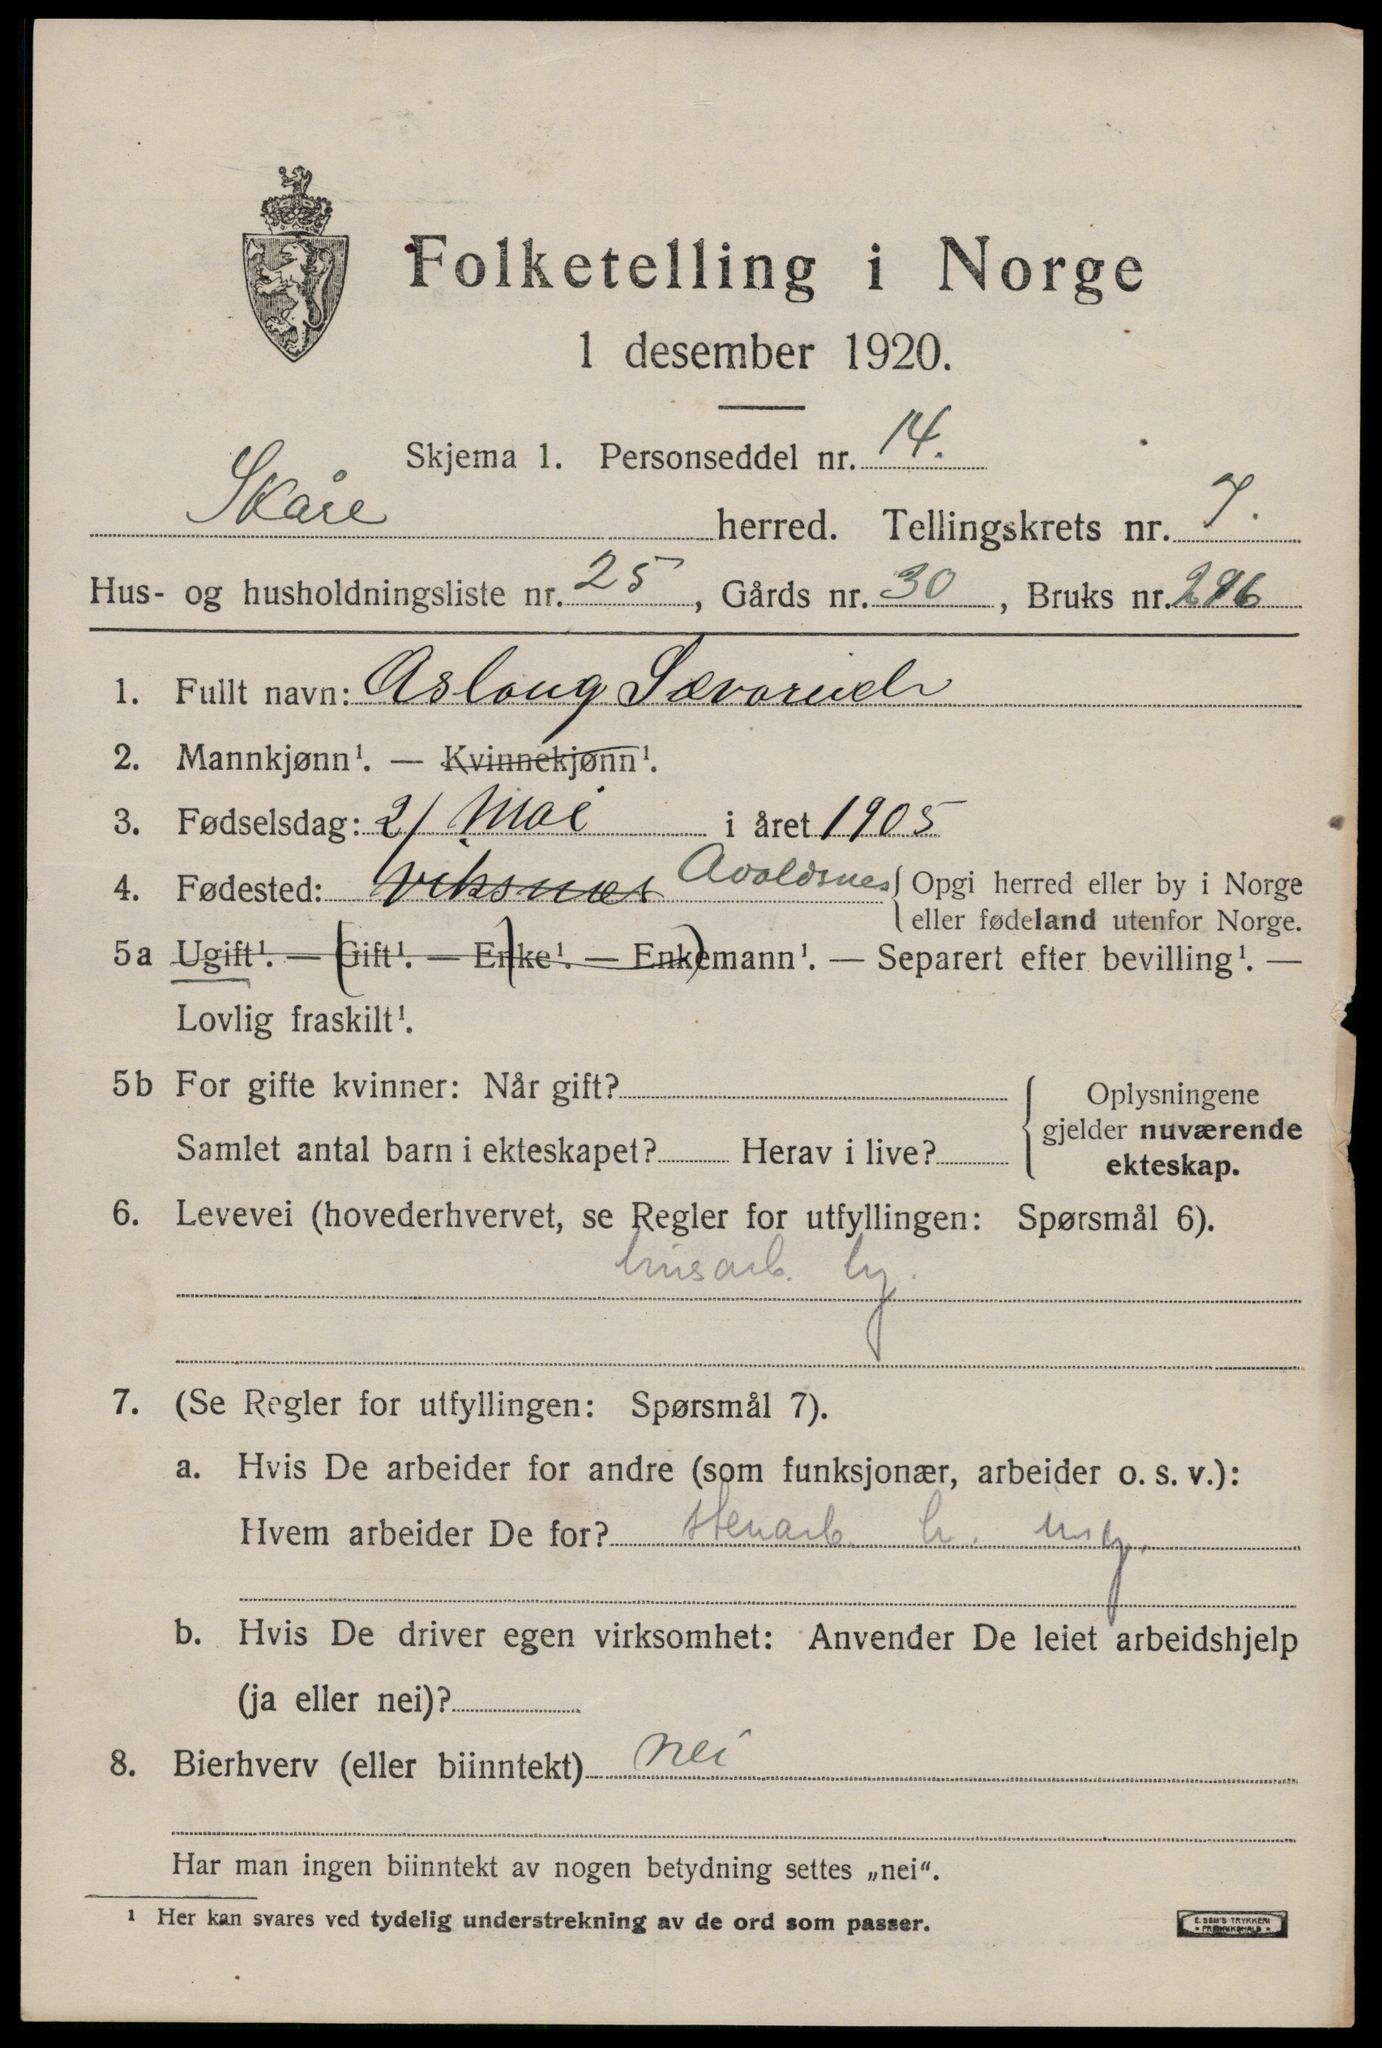 Folketelling i Norge
1 desember 1920.
Skjema 1. Personseddel nr. 14.
Skåre herred. Tellingskrets nr. 7.
Hus- og husholdningsliste nr. 25, Gårds nr. 30, Bruks nr.
1. Fullt navn: Aslaug
2. Mannkjønn¹. — Kvinnekjønn¹.
3. Fødselsdag: 2/ Mai i året 1905
4. Fødested: Viksnes Avaldsnes Opgi herred eller by i Norge
eller fødeland utenfor Norge.
5a Ugift¹. — Gift¹. — Enke¹. — Enkemann¹. — Separert efter bevilling¹. —
Lovlig fraskilt¹.
5b For gifte kvinner: Når gift?
Samlet antal barn i ekteskapet? Herav i live?
Oplysningene
gjelder nuværende
ekteskap.
6. Levevei (hovederhvervet, se Regler for utfyllingen: Spørsmål 6).
husarb. hj.
7. (Se Regler for utfyllingen: Spørsmål 7).
a. Hvis De arbeider for andre (som funksjonær, arbeider o. s. v.):
Hvem arbeider De for? stenarb.
b. Hvis De driver egen virksomhet: Anvender De leiet arbeidshjelp
(ja eller nei)?
8. Bierhverv (eller biinntekt) nei
Har man ingen biinntekt av nogen betydning settes „nei“.
¹ Her kan svares ved tydelig understrekning av de ord som passer.
E. SEM'S TRYKKERI
* FREDRIKSHALD *